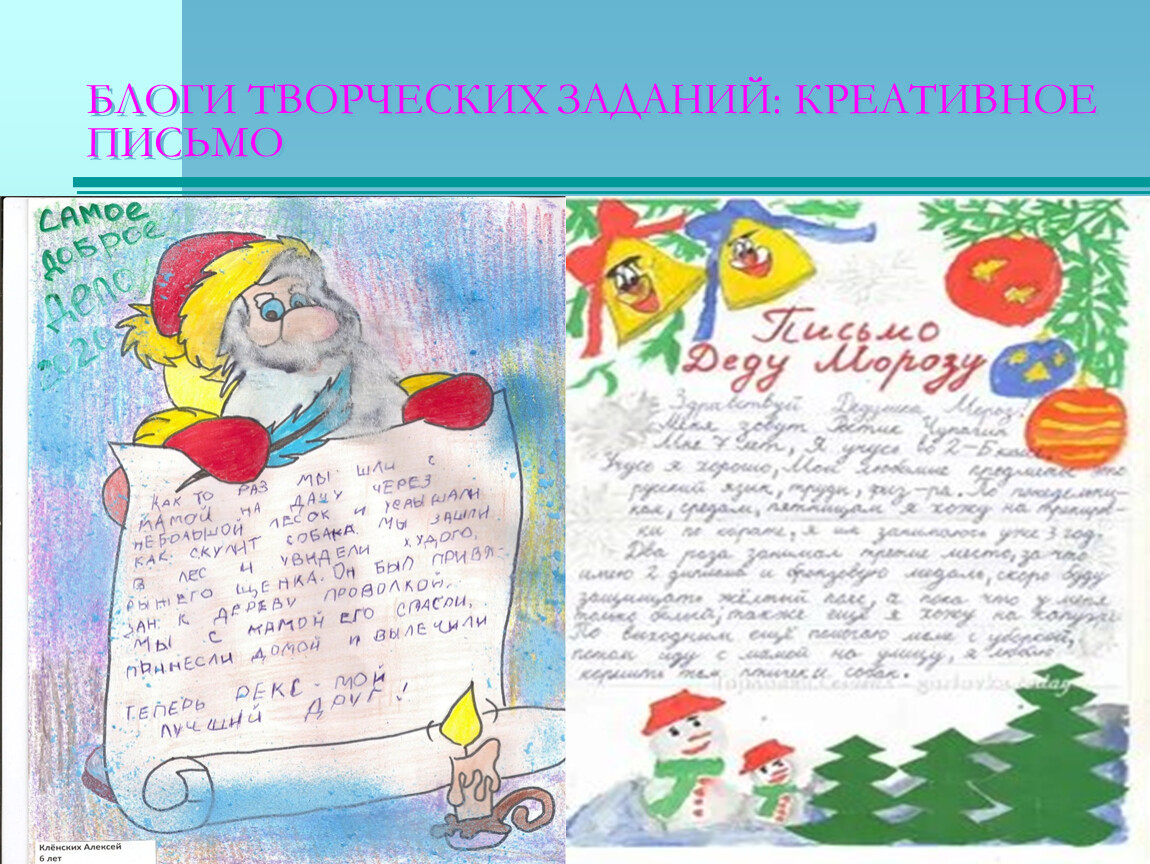 БЛОГИ ТВОРЧЕСКИХ ЗАДАНИЙ: КРЕАТИВНОЕ
ПИСЬМО
САМОЕ
ДОБРОЕ
ДЕЛО
КАК ТО РАЗ МЫ ШЛИ С
МАМОЙ НА ДАЧУ ЧЕРЕЗ
НЕБОЛЬШОЙ ЛЕСОК И УСЛЫШАЛИ
КАК СКУЛИТ СОБАКА. МЫ ЗАШЛИ
В ЛЕС И УВИДЕЛИ ХУДОГО,
РЫЖЕГО ЩЕНКА. ОН БЫЛ ПРИВЯ-
ЗАН К ДЕРЕВУ ПРОВОЛКОЙ.
МЫ С МАМОЙ ЕГО СПАСЛИ,
ПРИНЕСЛИ ДОМОЙ И ВЫЛЕЧИЛИ
ТЕПЕРЬ РЕКС - МОЙ
ЛУЧШИЙ ДРУГ!
Клёнских Алексей
6 лет
Письмо
Деду Морозу
Здравствуй Дедушка Мороз!
Меня зовут
Мне лет, Я учусь во 2-Б
Учусь я хорошо, Мои любимые предметы это
русский язык, труды, физ-ра. По понедельни-
кам, средам, пятницам я хожу на трениров-
ки по карате, я им занимаюсь уже 3 год.
Два раза занимал третие место, за что
имею 2 диплома и бронзовую медаль, скоро буду
защищать жёлтый пояс, а пока что у меня
только белый, также ещё я хожу на
По выходным ещё помогаю маме с уборкой,
потом иду с мамой на улицу, я люблю
кормить там птичек и собак.